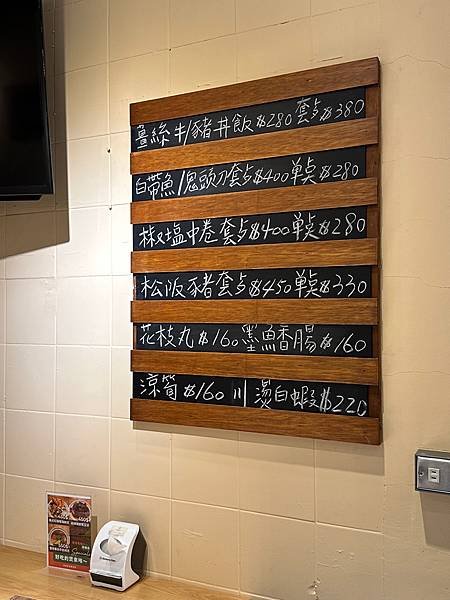 薑絲牛/豬丼飯$280 套点$380
白帶魚/鬼頭刀套点$400單点$280
椒塩中卷套点$400單点$280
松阪豬套点$450單点$330
花枝丸$160墨魚香腸$160
涼筍$160 川燙白蝦$220